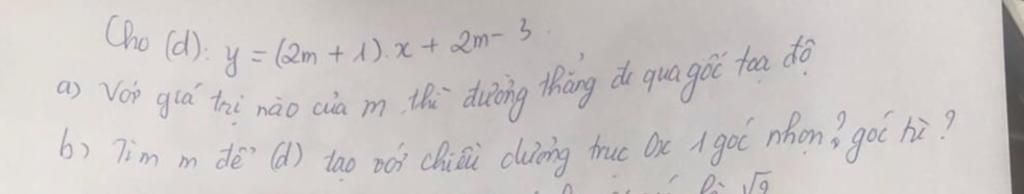 Cho (d): y = (2m + 1).x + 2m - 3.
a) Với giá trị nào của m thì đường thẳng đi qua gốc toạ độ
b) Tìm m để (d) tạo với chiều dương trục Ox 1 góc nhọn? góc tù?
√9